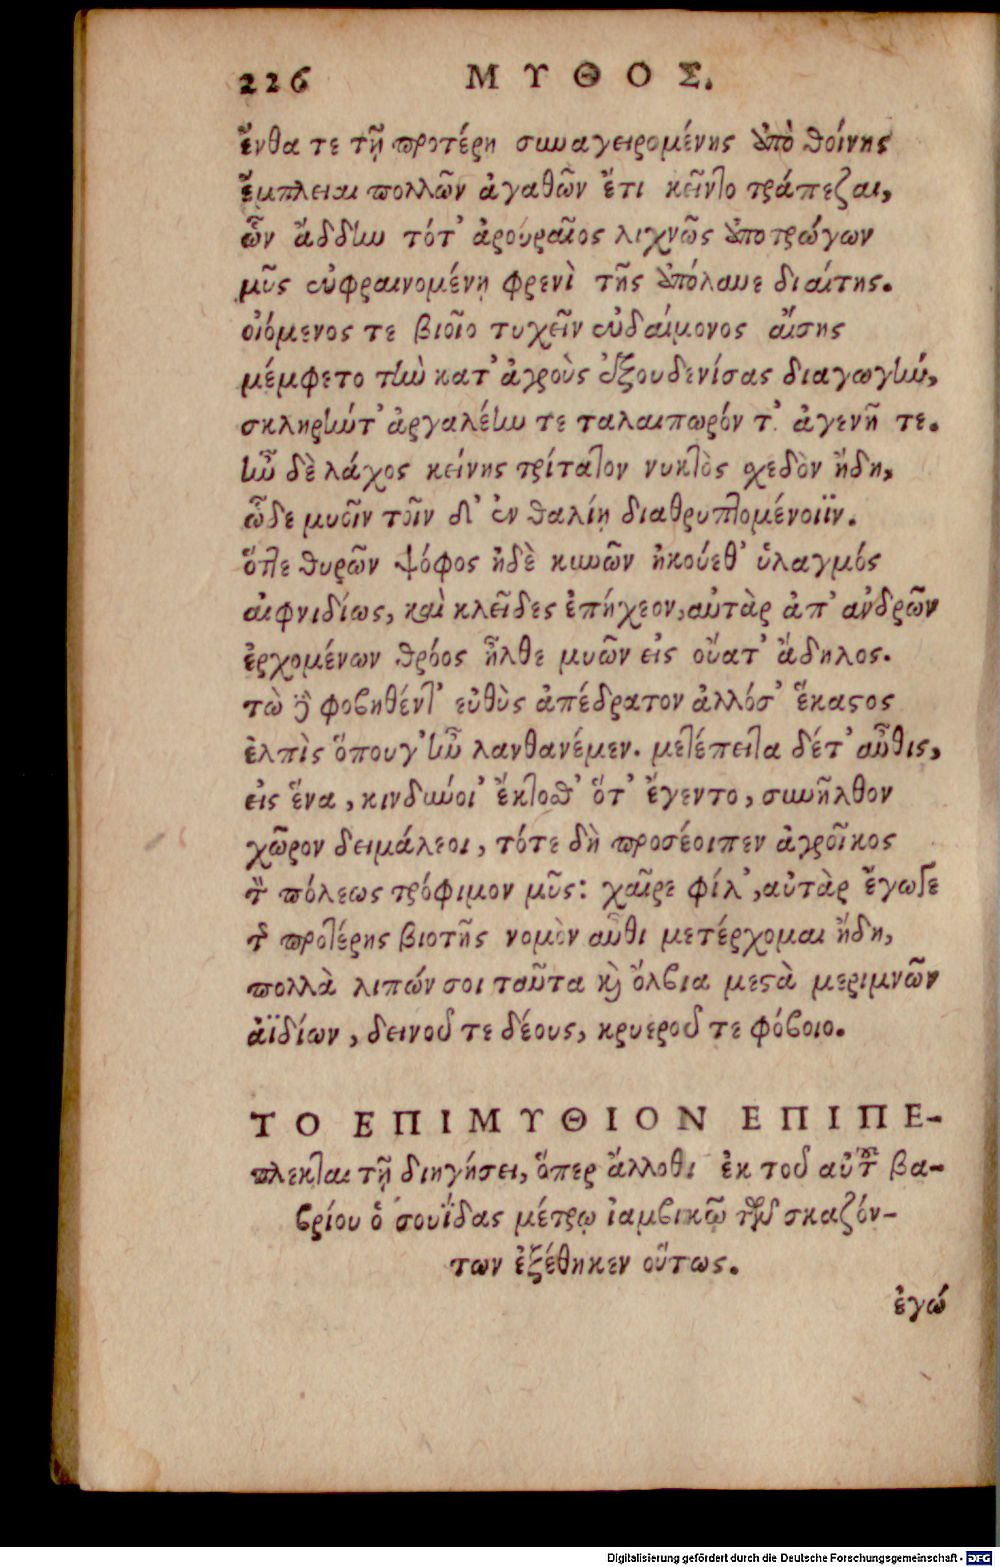 226 ΜΥΘΟΣ.
ἔνθα τε τῇ προτέρῃ συναγειρομένης ἀπὸ θοίνης
ἔμπλειαι πολλῶν ἀγαθῶν ἔτι κεῖντο τράπεζαι,
ὧν ἄδδην τότ' ἀρουραῖος λιχνῶς ἀποτρώγων
μῦς εὐφραινομένῃ φρενὶ τῆς ἀπόλαυε διαίτης.
οἰόμενος τε βιοῖο τυχεῖν εὐδαίμονος αἴσης
μέμφετο τὴν κατ' ἀγροὺς ἐξουδενίσας διαγωγήν,
σκληρήντ' ἀργαλέην τε ταλαιπωρόν τ' ἀγενῆ τε.
ἦν δὲ λάχος κείνης τρίτατον νυκτὸς σχεδὸν ἤδη,
ὧδε μυοῖν τοῖν δι' ἐν θαλίῃ διαθρυπτομένοιϊν.
ὅτε θυρῶν ψόφος ἠδὲ κυνῶν ἠκούεθ' ὑλαγμός
αἰφνιδίως, καὶ κλεῖδες ἐπήχεον, αὐτὰρ ἀπ' ἀνδρῶν
ἐρχομένων θρόος ἦλθε μυῶν εἰς οὔατ' ἄδηλος.
τὼ δὲ φοβηθέντ' εὐθὺς ἀπέδρατον ἀλλόσ' ἕκαστος
ἐλπὶς ὅπουγ' ἦν λανθανέμεν. μετέπειτα δέτ' αὖθις,
εἰς ἕνα, κινδύνοι' ἔκτοθ' ὅτ' ἔγεντο, συνῆλθον
χῶρον δειμάλεοι, τότε δὴ προσέοιπεν ἀγροῖκος
τὸν πόλεως τρόφιμον μῦς: χαῖρε φίλ', αὐτὰρ ἔγωγε
τῆς προτέρης βιοτῆς νομὸν αὖθι μετέρχομαι ἤδη,
πολλὰ λιπών σοι ταῦτα καὶ ὄλβια μεστὰ μεριμνῶν
ἀϊδίων, δεινοῦ τε δέους, κρυεροῦ τε φόβοιο.
ΤΟ ΕΠΙΜΥΘΙΟΝ ΕΠΙΠΕ-
πλεκται τῇ διηγήσει, ὅπερ ἄλλοθι ἐκ τοῦ αὐτοῦ βα-
βρίου ὁ σουΐδας μέτρῳ ἰαμβικῷ τῶν σκαζόν-
των ἐξέθηκεν οὕτως.
ἐγώ
Digitalisierung gefördert durch die Deutsche Forschungsgemeinschaft - DFG